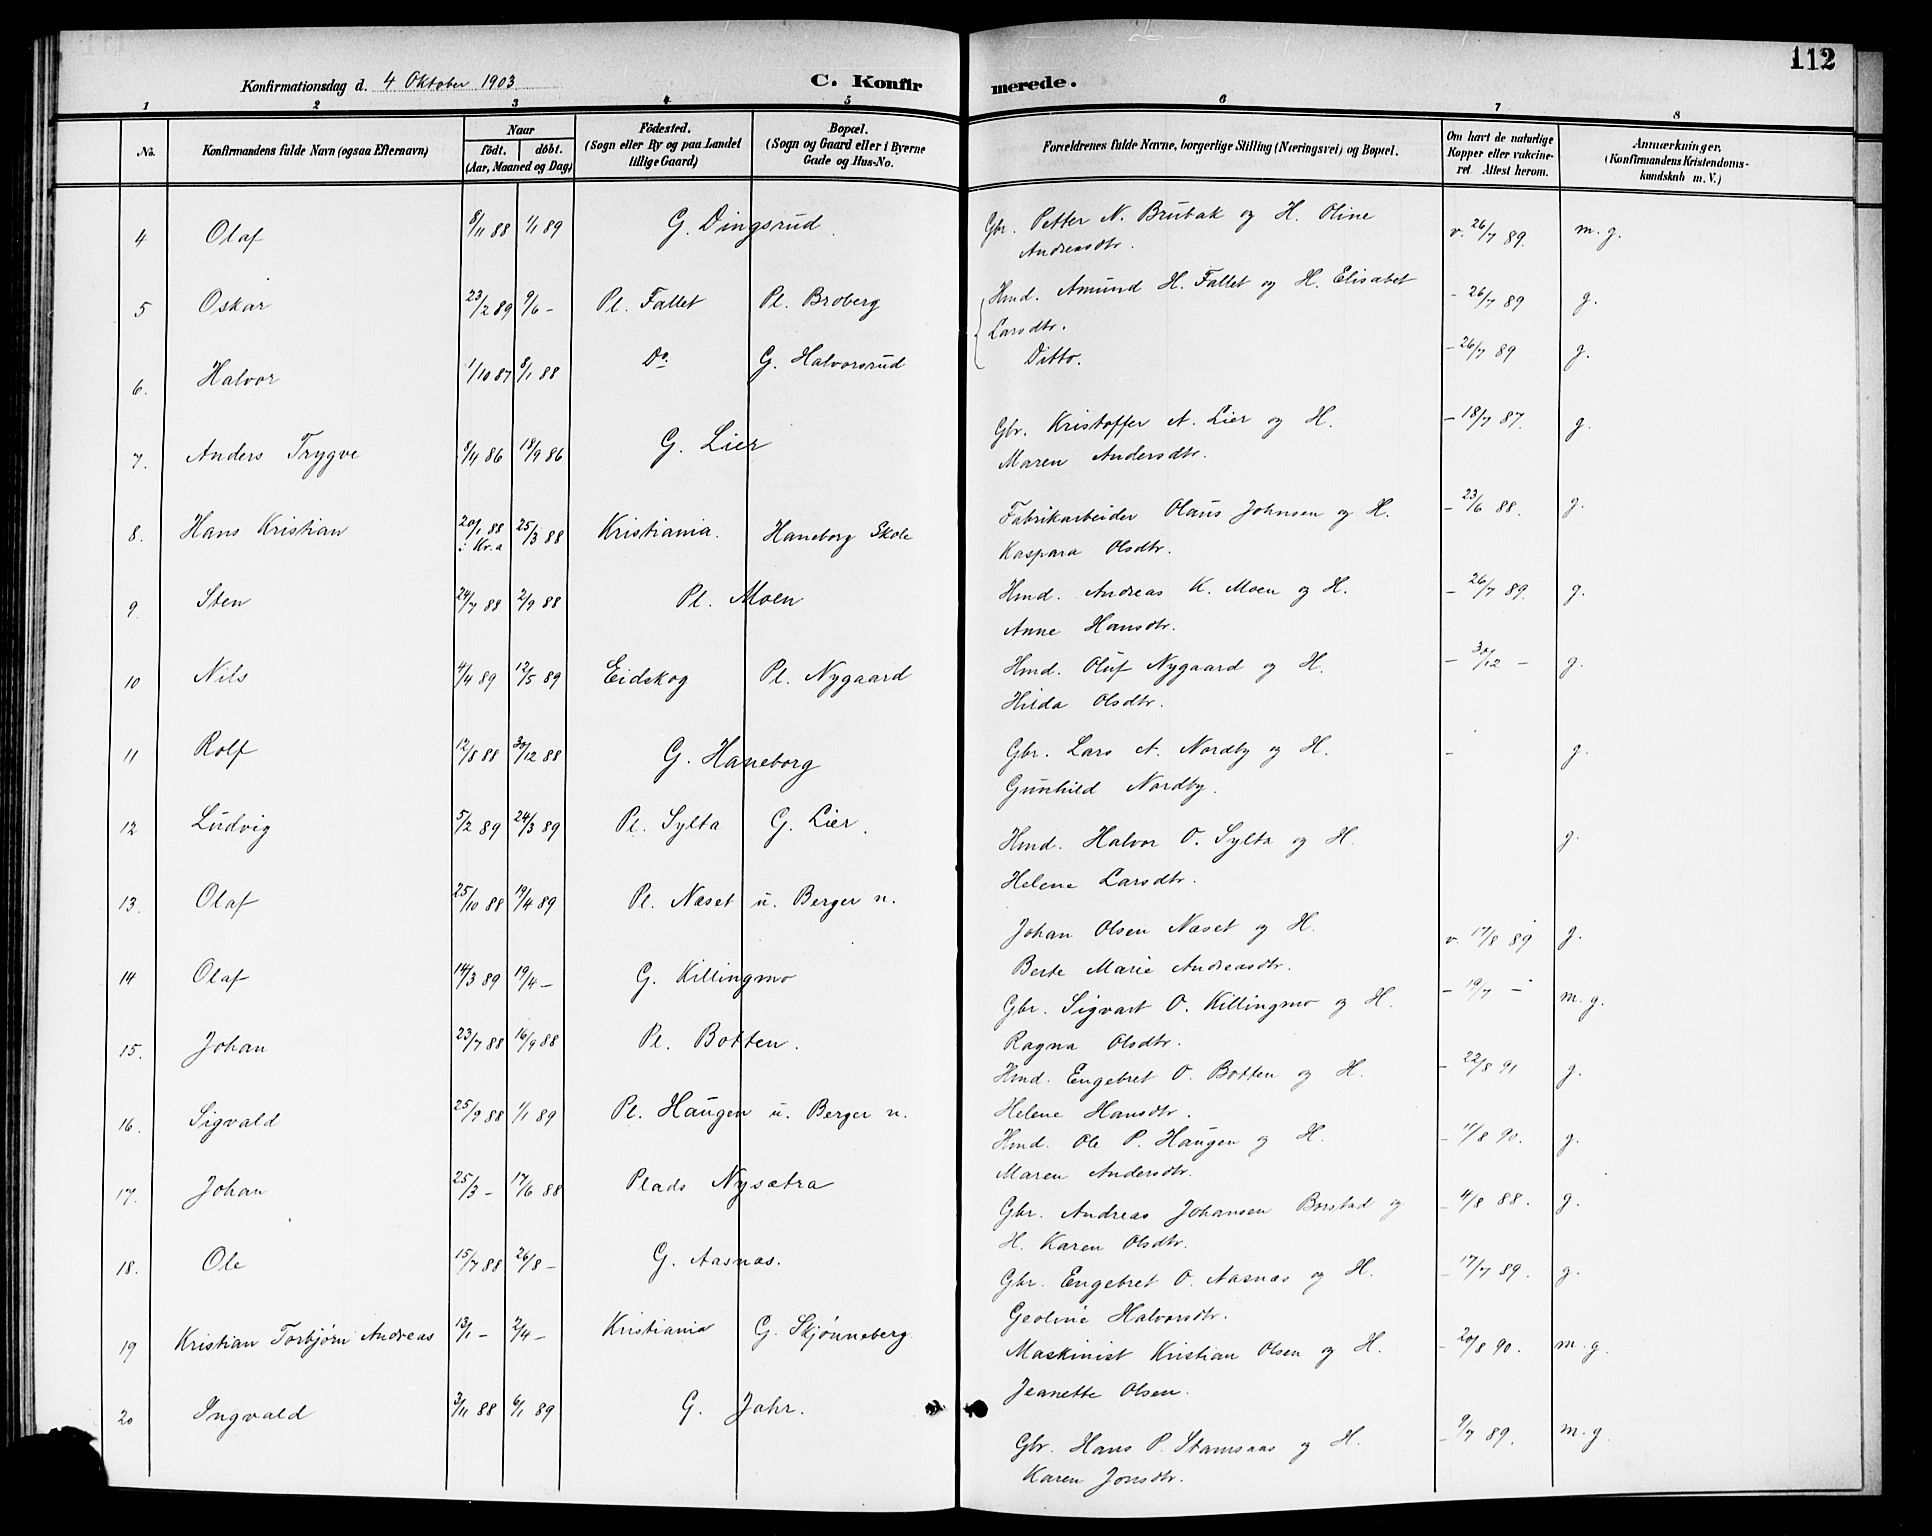 112
Konfirmationsdag d. 4 Oktober 1903 C. Konfirmerede.
1 2 3 4 5 6 7 8
No. Konfirmandens fulde Navn (ogsaa Efternavn) Naar födt. döbt. (Aar, Maaned og Dag) Födested. (Sogn eller By og paa Landet tillige Gaard) Bopæl. (Sogn og Gaard eller i Byerne Gade og Hus-No. Forældrenes fulde Navne, borgerlige Stilling (Næringsvei) og Bopæl. Om havt de naturlige Kopper eller vakcineret Attest herom. Anmærkninger. (Konfirmandens Kristendomskundskab m. V.)
4 Olaf 8/11 88 1/1 89 G. Dingsrud. Gbr. Petter N. Brubak og H. Oline v. 26/7 89. m. g.
Andreasdtr.
5 Oskar 23/2 89 9/6 – Pl. Fallet Pl. Broberg Hmd. Amund H. Fallet og H. Elisabet – 26/7 89 g.
Larsdtr.
6. Halvor 1/10 87 8/1 88 Do G. Halvorsrud Ditto. – 26/7 89 g.
7. Anders Trygve 8/4 86 18/9 86 G. Lier Gbr. Kristoffer A. Lier og H. – 18/7 87. g.
Maren Andersdtr.
8. Hans Kristian 20/1 88 i Kr.a 25/3 88 Kristiania. Haneborg Skole Fabrikarbeider Olaus Johnsen og H. – 23/6 88. g.
Kaspara Olsdtr.
9. Sten 24/7 88 2/9 88 Pl. Moen Hmd. Andreas K. Moen og H. – 26/7 89. g.
Anne Hansdtr.
10 Nils 4/4 89 12/5 89 Eidskog Pl. Nygaard Hmd. Oluf Nygaard og H. – 30/12 – g.
Hilda Olsdtr.
11 Rolf 12/8 88 30/12 88 G. Haneborg Gbr. Lars A. Nordby og H. – g.
Gunhild Nordby.
12 Ludvig 5/2 89 24/3 89 Pl. Sylta G. Lier. Hmd. Halvor O. Sylta og H. g.
Helene Larsdtr.
13. Olaf 25/10 88 19/4 89 Pl. Næset u. Berger n. Johan Olsen Næset og H. v. 17/8 89 g.
Berte Marie Andreasdtr.
14 Olaf 14/3 89 19/4 – G. Killingmo Gbr. Sigvart O. Killingmo og H. – 19/7 – m. g.
Ragna Olsdtr.
15. Johan 23/7 88 16/9 88 Pl. Botten. Hmd. Engebret O. Botten og H. – 22/8 91 g.
Helene Hansdtr.
16. Sigvald 25/9 88 1/1 89 Pl. Haugen u. Berger n. Hmd. Ole P. Haugen og H. – 11/8 90. g.
Maren Andersdtr.
17. Johan 25/3 – 17/6 88 Plads Nysætra Gbr. Andreas Johansen Borstad og – 4/8 88. g.
H. Karen Olsdtr.
18. Ole 15/7 88 26/8 – G. Aasnæs. Gbr. Engebret O. Aasnæs og H. – 17/7 89. g.
Geoline Halvorsdtr.
19 Kristian Torbjørn Andreas 13/1 – 2/4 – Kristiania G. Skjønneberg Maskinist Kristian Olsen og H. – 20/8 90. m. g.
Jeanette Olsen.
20 Ingvald 3/11 88 6/1 89 G. Jahr. Gbr. Hans P. Stamsaas og H. – 9/7 89. m. g.
Karen Jonsdtr.